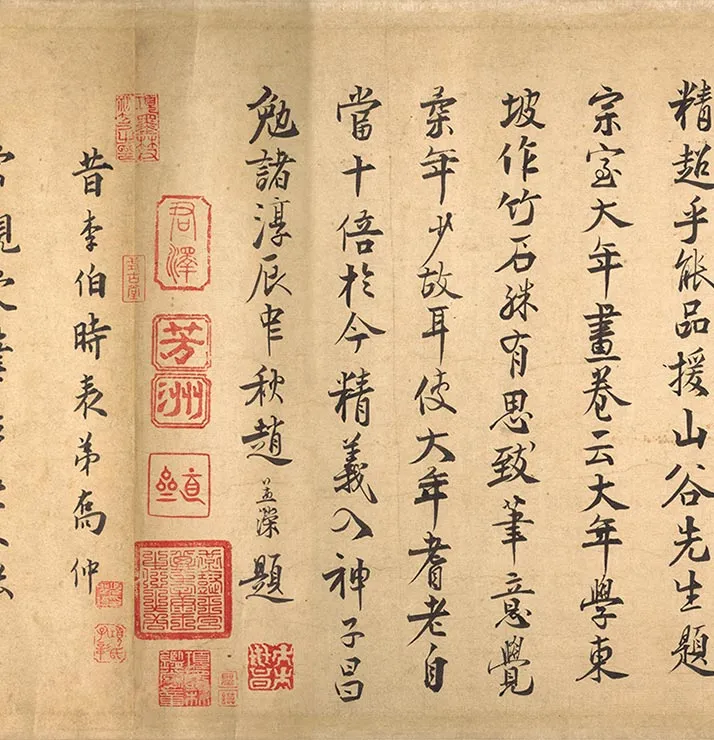 精超乎能品援山谷先生題
宗室大年畫卷云大年學東
坡作竹石殊有思致筆意覺
柔年少故耳使大年耆老自
當十倍於今精義入神子昌
勉諸淳辰中秋趙孟濚題
君澤
芳洲
式古堂
昔李伯時表弟喬仲